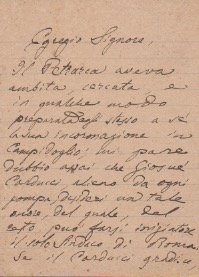 Egregio Signore,
Il Petrarca aveva
ambita, cercata e
in qualche modo
preparata egli stesso a sè
la sua incoronazione in
Campidoglio: mi pare
dubbio assai che Giosuè
Carducci alieno da ogni
pompa, desideri un tale
onore, del quale, del
resto, può farsi
il solo Sindaco di Roma.
Se il Carducci gradisce